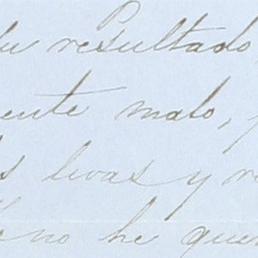 su resultado,
ente malo,
levas y
no he que